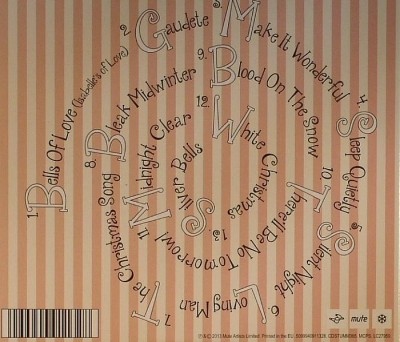 1. Bells Of Love (Isabelle's of Love)
2. Gaudete
3. Make It Wonderful
4. Sleep Quietly
5. Silent Night
6. Loving Man
7. The Christmas Song
8. Bleak Midwinter
9. Blood On The Snow
10. There'll Be No Tomorrow
11. Midnight Clear
12. White Christmas
13. Silver Bells
mute